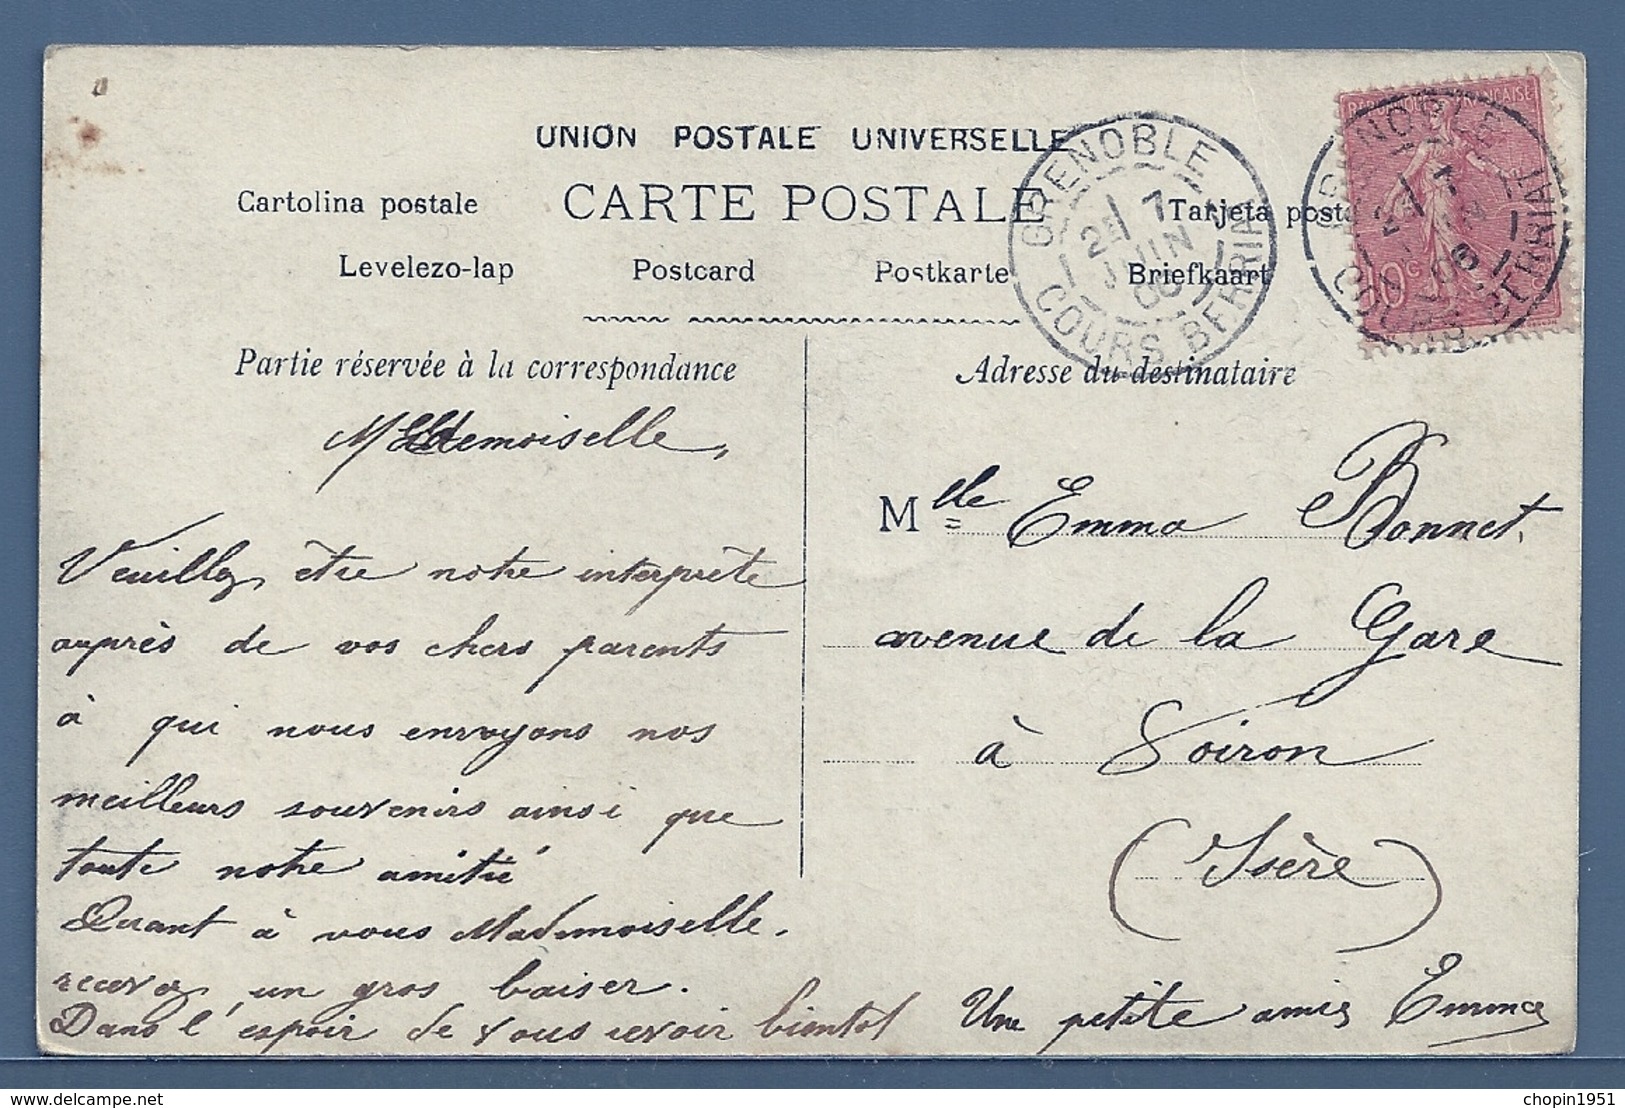 UNION POSTALE UNIVERSELLE
Cartolina postale CARTE POSTALE Tarjeta posta
Levelezo-lap Postcard Postkarte Briefkaart
GRENOBLE
2E 7
JUIN
06
COURS BERRIAT
REPUBLIQUE FRANÇAISE
10c
GRENOBLE
2E 7
JUIN
06
COURS BERRIAT
Partie réservée à la correspondance
Mademoiselle,
Veuillez être notre interprète
auprès de vos chers parents
à qui nous envoyons nos
meilleurs souvenirs ainsi que
toute notre amitié
Quant à vous Mademoiselle.
recevez un gros baiser.
Dans l'espoir de vous revoir bientot
Une petite amie Emma
Adresse du destinataire
Mlle Emma Bonnet.
avenue de la Gare
à Voiron
(Isère)
chopin1951